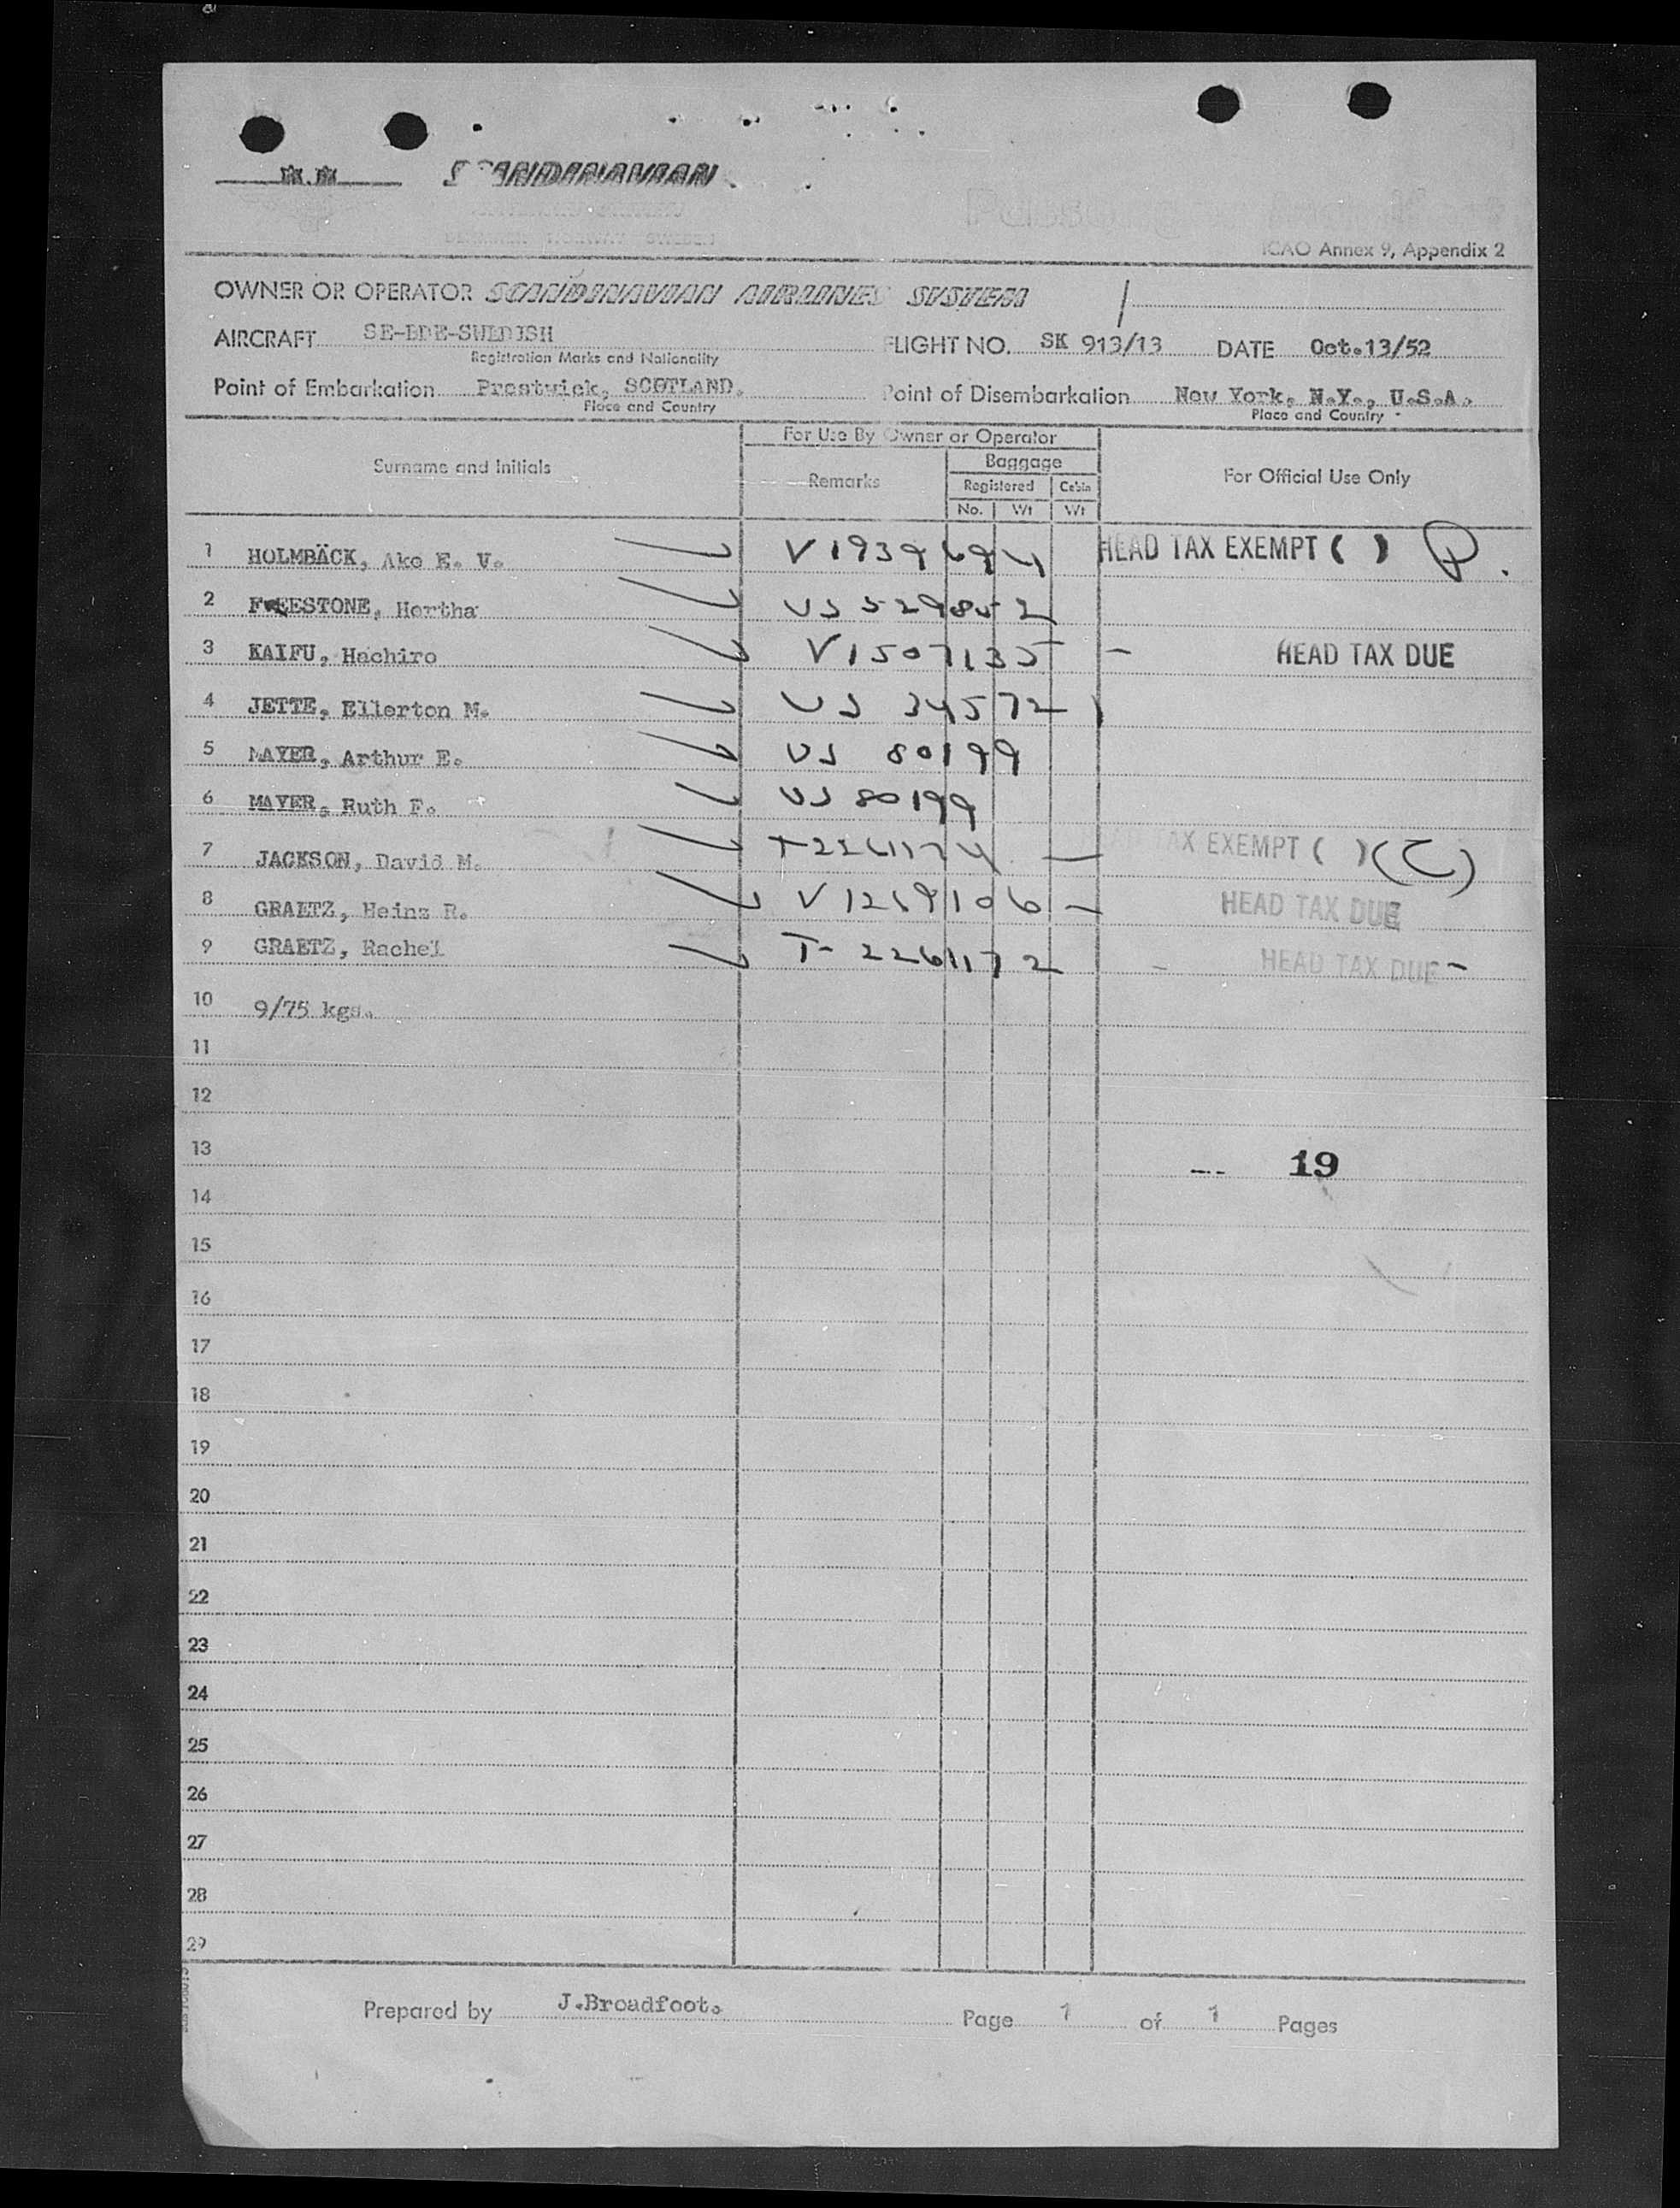 SCANDINAVIAN
ICAO Annex 9, Appendix 2
OWNER OR OPERATOR SCANDINAVIAN AIRLINES SYSTEM
AIRCRAFT SE-BDE-SWEDISH FLIGHT NO. SK 913/13 DATE Oct.13/52
Registration Marks and Nationality
Point of Embarkation Prestwick, SCOTLAND. Point of Disembarkation New York, N.Y., U.S.A.
Place and Country Place and Country
For Use By Owner or Operator
Surname and Initials Remarks Baggage For Official Use Only
Registered Cabin
No. Wt Wt
1 HOLMBÄCK, Ake E. V. V 1939694 HEAD TAX EXEMPT ( ) P.
2 FREESTONE, Hertha US 529852
3 KAIFU, Hachiro V1507135 - HEAD TAX DUE
4 JETTE, Ellerton M. US 34572
5 MAYER, Arthur E. US 80199
6 MAYER, Ruth F. US 80199
7 JACKSON, David M. T-2261174 — HEAD TAX EXEMPT ( ) (C)
8 GRAETZ, Heinz R. V 1269106 — HEAD TAX DUE
9 GRAETZ, Rachel T-2261172 - HEAD TAX DUE -
10 9/75 kgs.
11
12
13 --- 19
14
15
16
17
18
19
20
21
22
23
24
25
26
27
28
29
Prepared by J.Broadfoot. Page 1 of 1 Pages